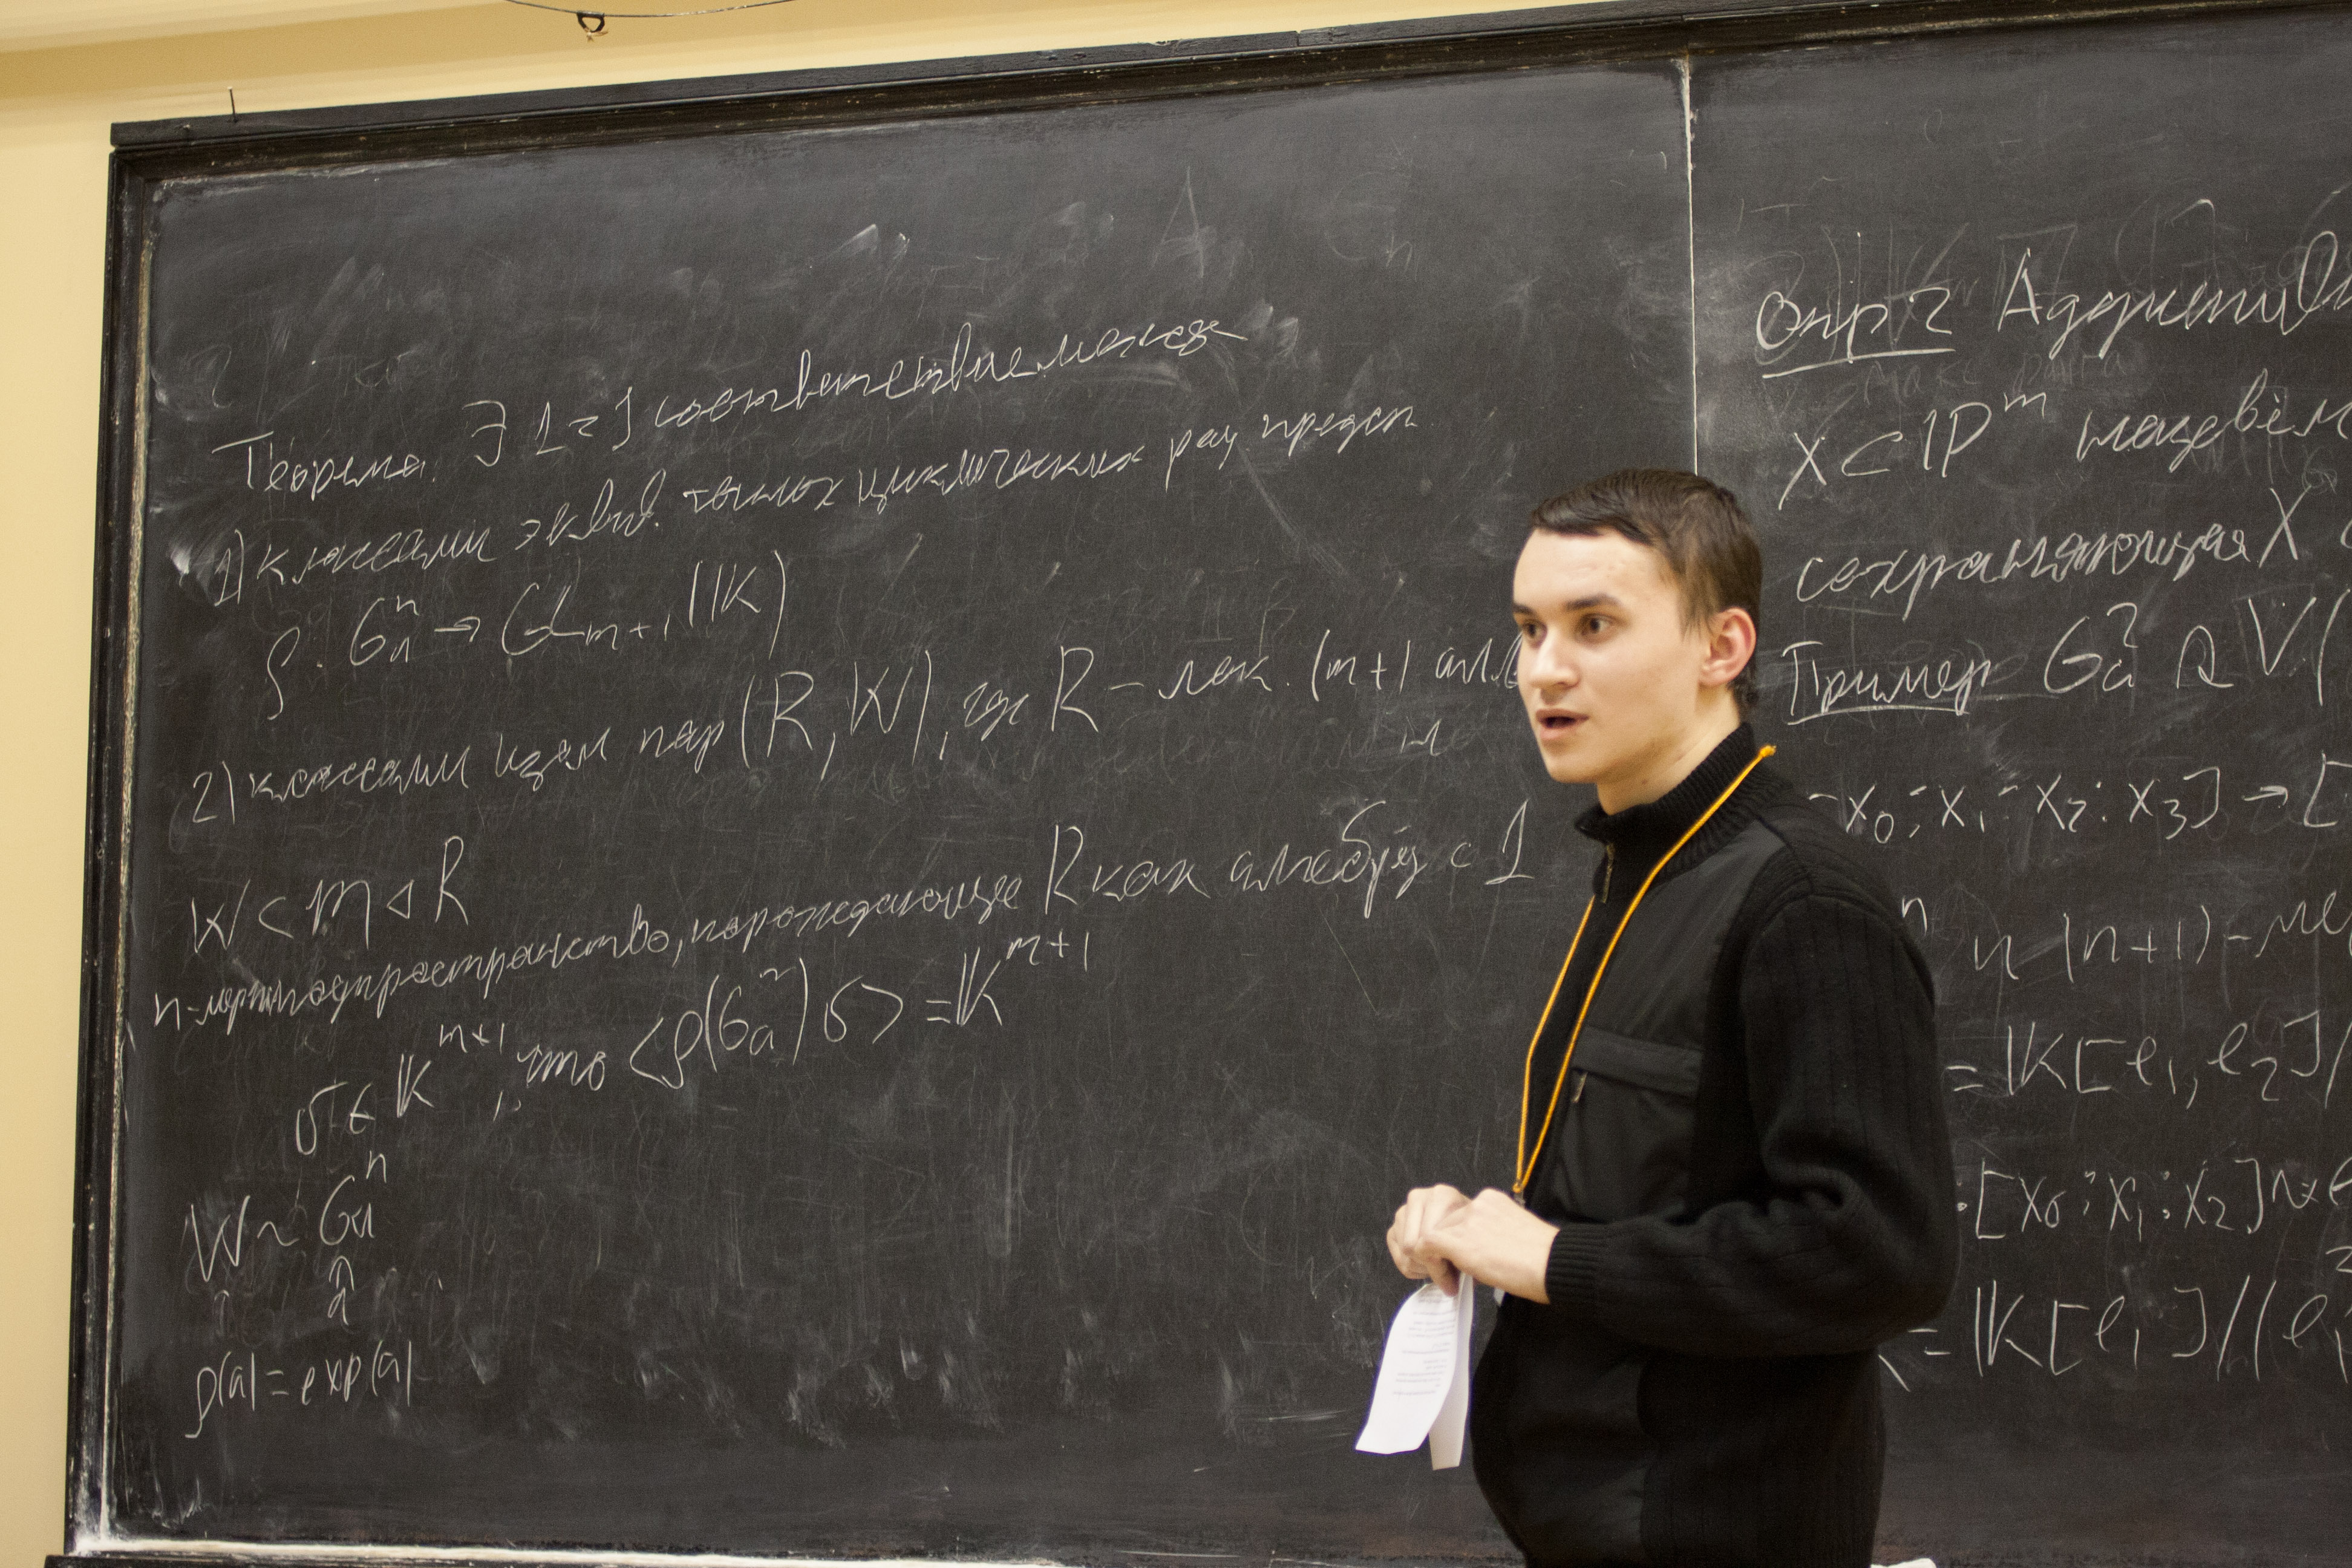 Теорема. ∃ 1-1 соответствие между
1) классами эквив. точных циклических рац. предст.
ρ: G_a^n → GL_{m+1}(𝕂)
2) классами изом пар (R, W), где R – лок. (m+1 алг
W ⊂ m ◁ R
n-мерн подпространство, порождающее R как алгебру с 1
v ∈ 𝕂^{m+1}, что <ρ(G_a^n) v> = 𝕂^{m+1}
W ~ G_a^n
ρ(a) = exp(a)
Опр 2 Аддитив
X ⊂ ℙ^m
сохраняющая X
Пример G_a^2 V(
x_0 : x_1 : x_2 : x_3] → [
n (n+1)-ме
= 𝕂[e_1, e_2]/
[x_0 : x_1 : x_2]
= 𝕂[e_1]/(e_1